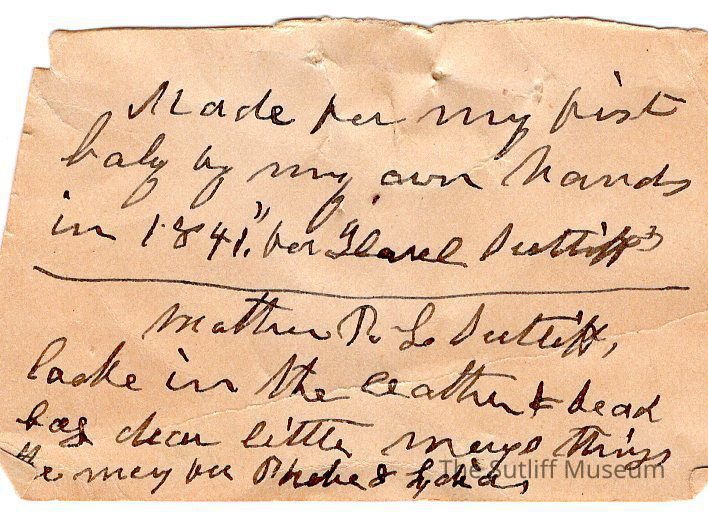 Made for my first
baby by my own hands
in 1841." for "Clarel Sutliff"
Mother R. L. Sutliff,
looke in the leather & bead
bag dear little things
may be Phebe & Lydia's
The Sutliff Museum